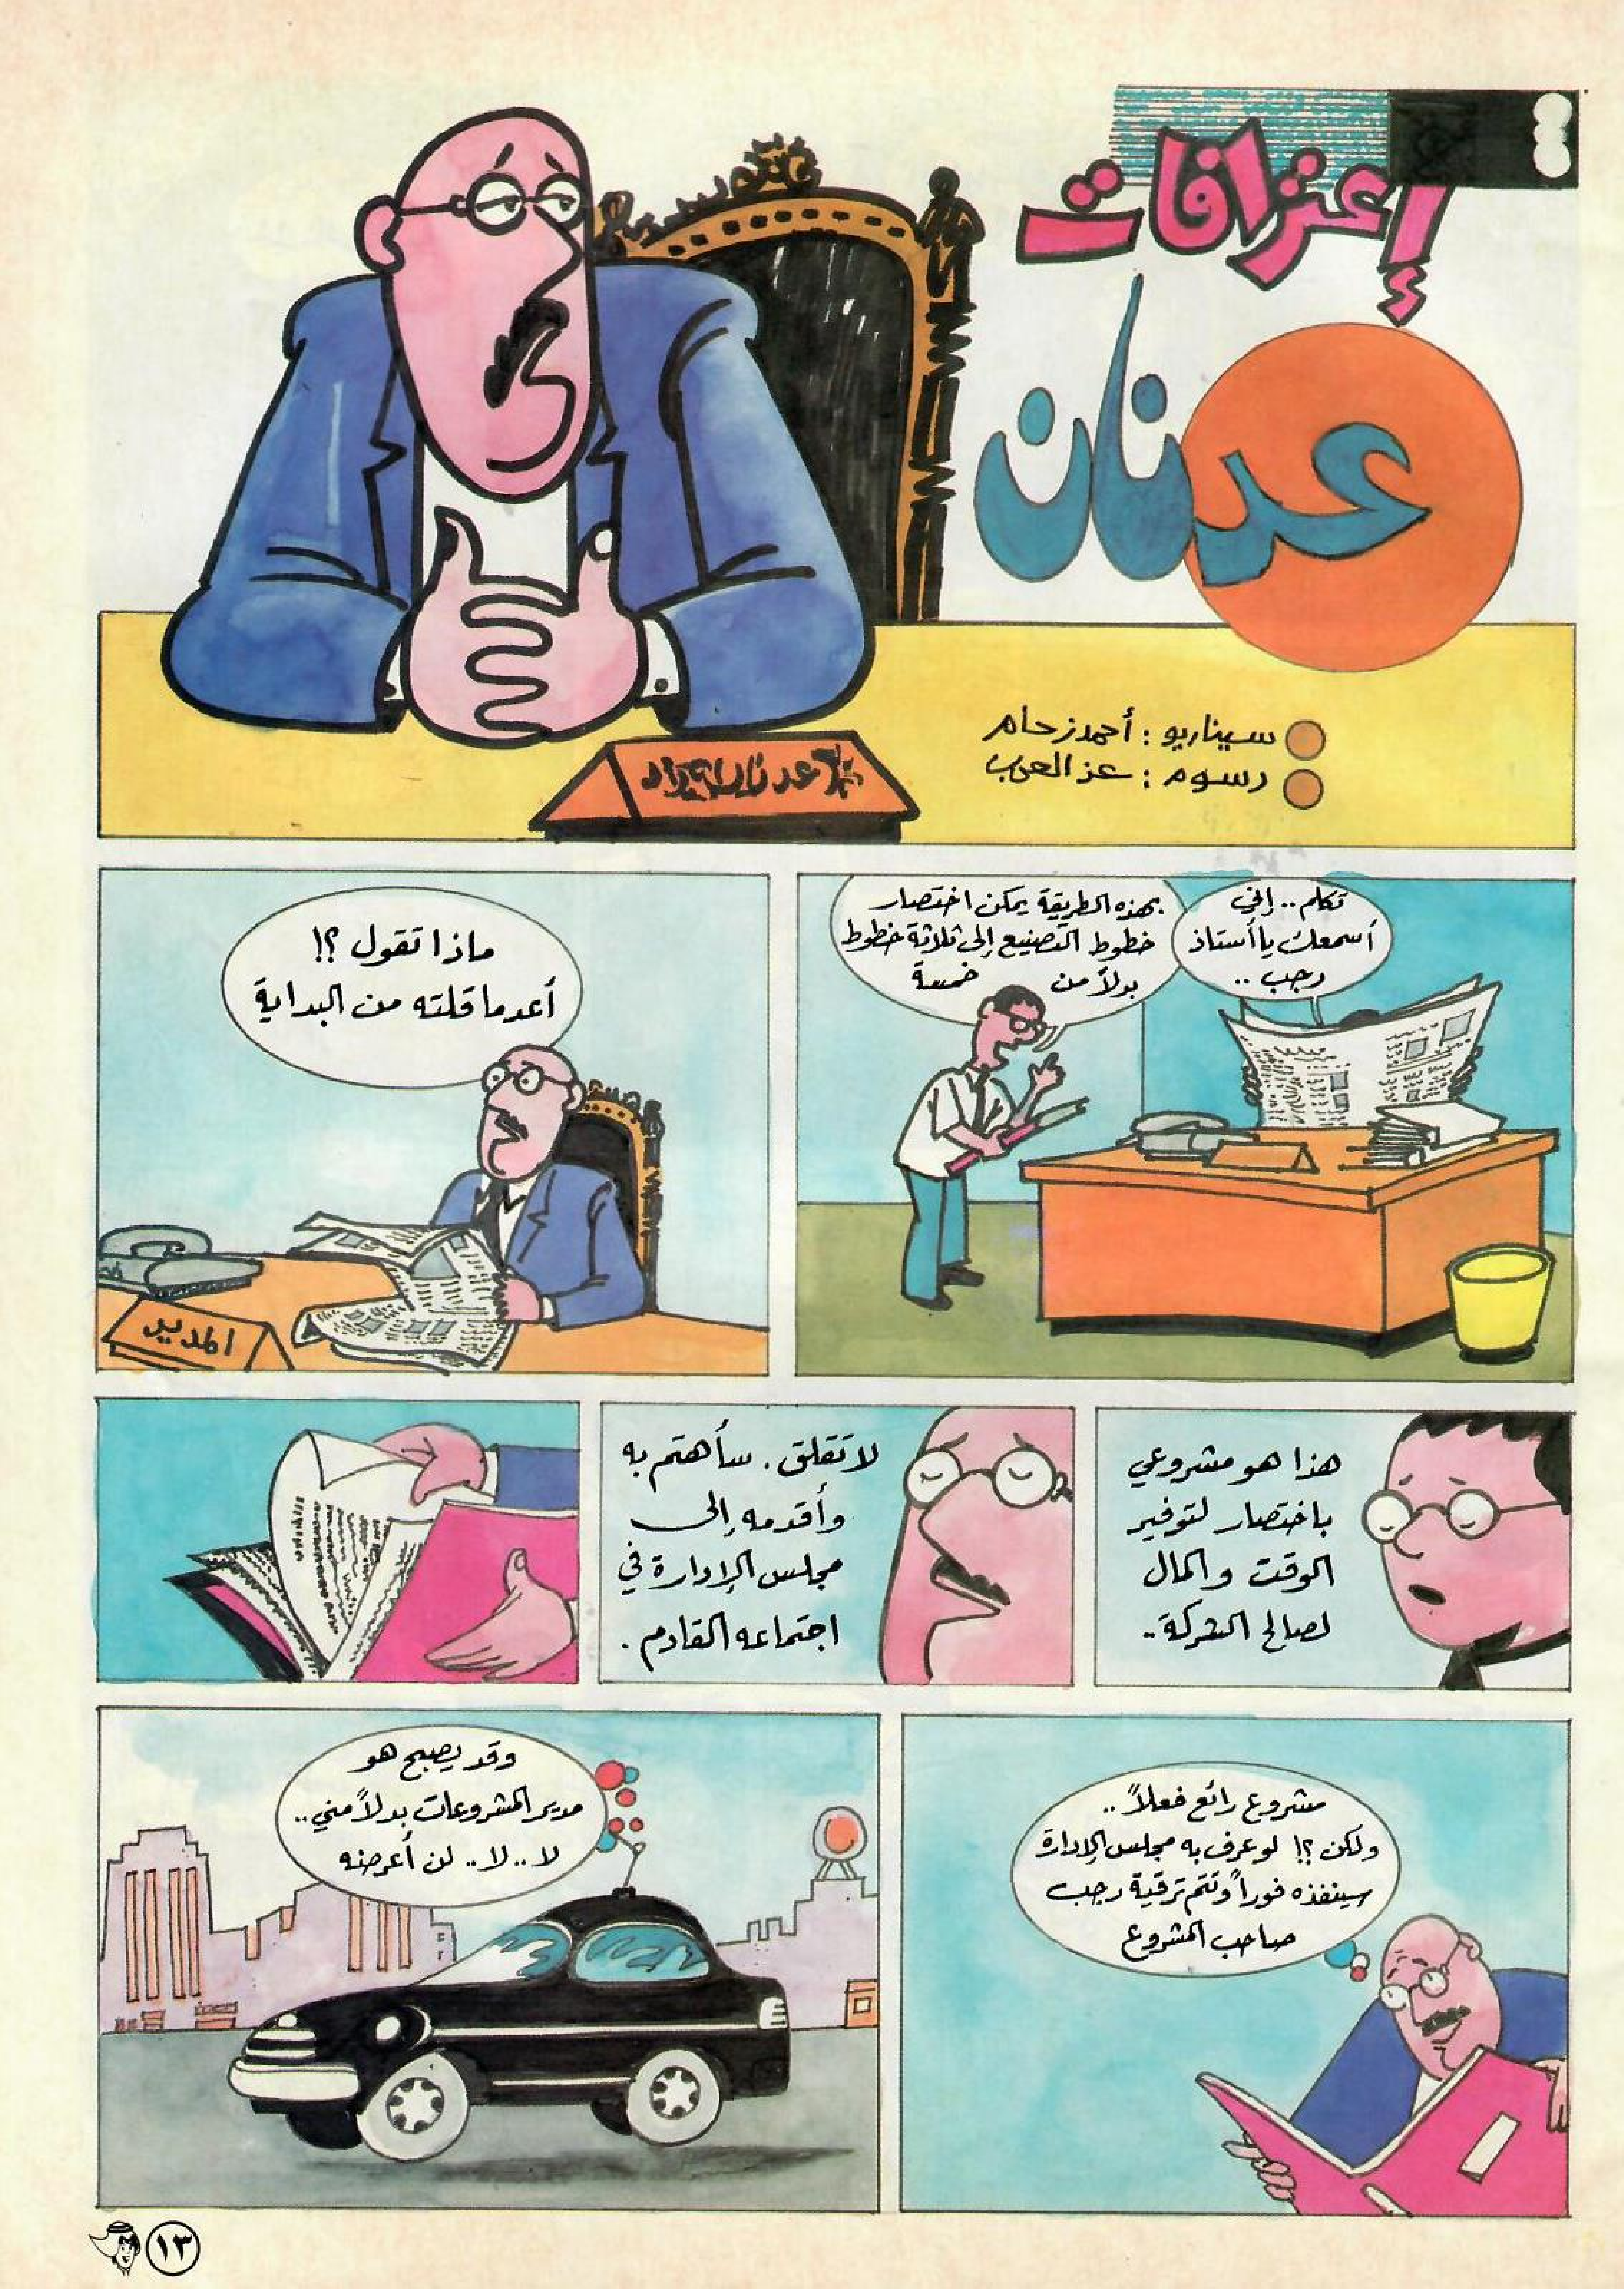 إعترافات
عدنان
سيناريو : أحمد زحام
رسوم : عز العرب
تكلم .. إني
أسمعك يا أستاذ
رجب ..
بهذه الطريقة يمكن اختصار
خطوط التصنيع إلى ثلاثة خطوط
بدلاً من خمسة
ماذا تقول ؟!
أعد ما قلته من البداية
المدير
هذا هو مشروعي
باختصار لتوفير
الوقت والمال
لصالح الشركة ..
لا تقلق . سأهتم به
وأقدمه إلى
مجلس الإدارة في
اجتماعه القادم .
مشروع رائع فعلاً ..
ولكن ؟! لو عرف به مجلس الإدارة
سينفذه فوراً وتتم ترقية رجب
صاحب المشروع
وقد يصبح هو
مدير المشروعات بدلاً مني ..
لا .. لا .. لن أعرضه
١٣